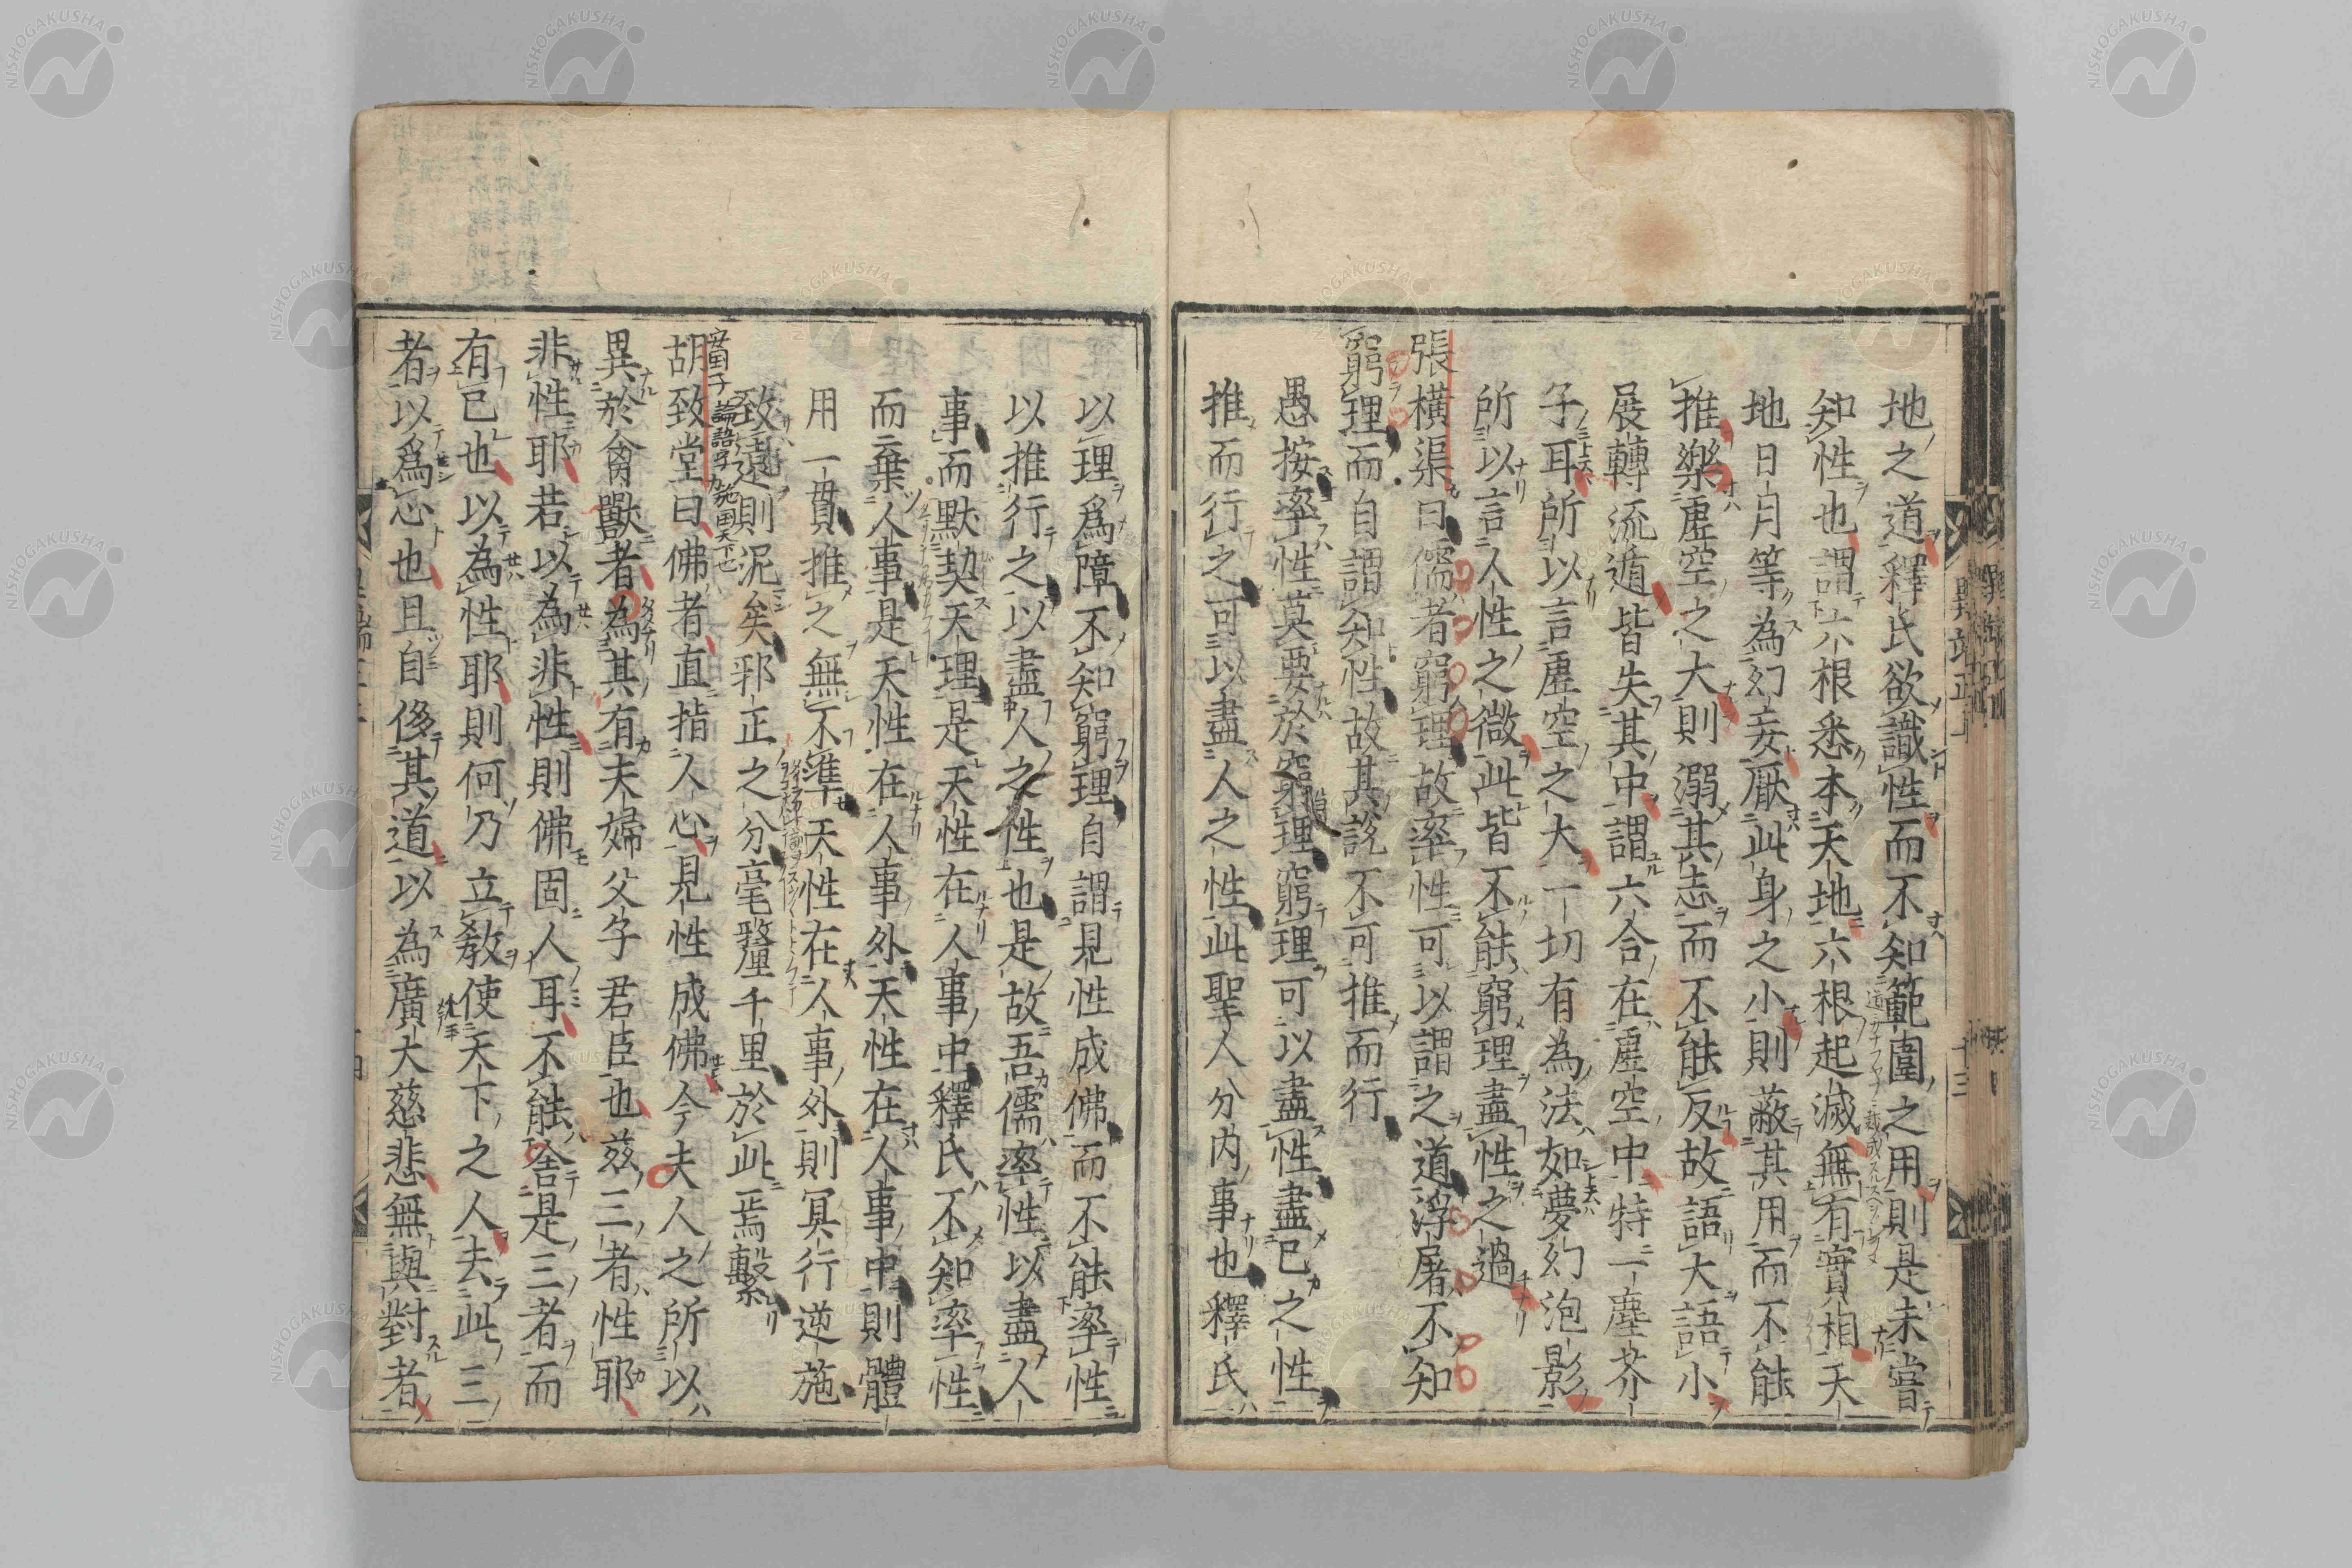 地之道釋氏欲識性而不知範圍之用則是未嘗
知性也謂六根悉本天地六根起滅無有實相天
地日月等為幻妄厭此身之小則蔽其用而不能
推樂虛空之大則溺其志而不能反故語大語小
展轉流遁皆失其中謂六合在虛空中特一塵芥
子耳所以言虛空之大一切有為法如夢幻泡影
所以言人性之微此皆不能窮理盡性之過
張橫渠曰儒者窮理故率性可以謂之道浮屠不知
窮理而自謂知性故其說不可推而行
愚按率性莫要於窮理窮理可以盡性盡已之性
推而行之可以盡人之性此聖人分内事也釋氏
以理爲障不知窮理自謂見性成佛而不能率性
以推行之以盡人之性也是故吾儒率性以盡人
事而默契天理是天性在人事中釋氏不知率性
而棄人事是天性在人事外天性在人事中則體
用一貫推之無不準天性在人事外則冥行逆施
致遠則泥矣邪正之分毫釐千里於此焉繫
胡致堂曰佛者直指人心見性成佛今夫人之所以
異於禽獸者為其有夫婦父子君臣也茲三者性耶
非性耶若以為非性則佛固人耳不能舍是三者而
有已也以為性耶則何乃立教使天下之人去此三
者以爲心也且自侈其道以為廣大慈悲無與對者